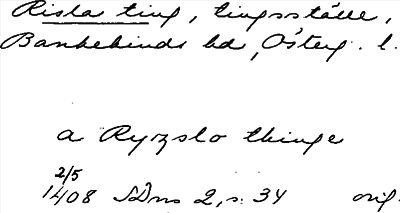 Risla ting, tingsställe,
Bankekinds hd, Österg. l.
a Ryzslo thinge
2/5
1408 SDns 2, s. 34 orig.